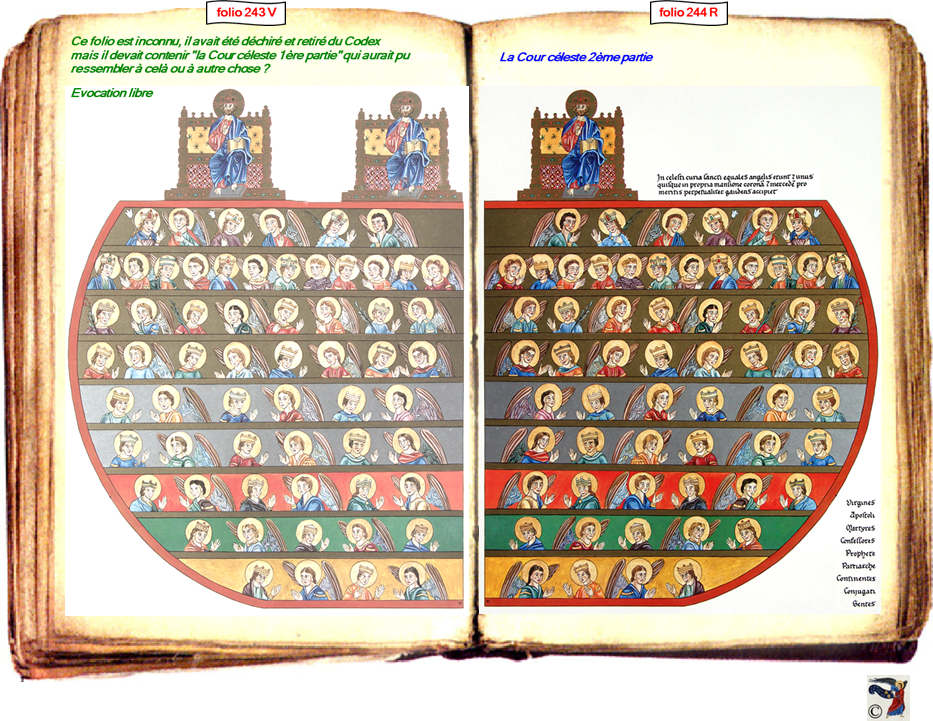 folio 243 V
Ce folio est inconnu, il avait été déchiré et retiré du Codex
mais il devait contenir "la Cour céleste 1ère partie" qui aurait pu
ressembler à celà ou à autre chose ?
Evocation libre
folio 244 R
La Cour céleste 2ème partie
In celesti curia sancti equales angelis erunt ⁊ unus
quisque in propria mansione coronā ⁊ mercedē pro
meritis perpetualiter gaudens accipiet
Virgines
Apostoli
Martyres
Confessores
Prophete
Patriarche
Continentes
Conjugati
Gentes
©